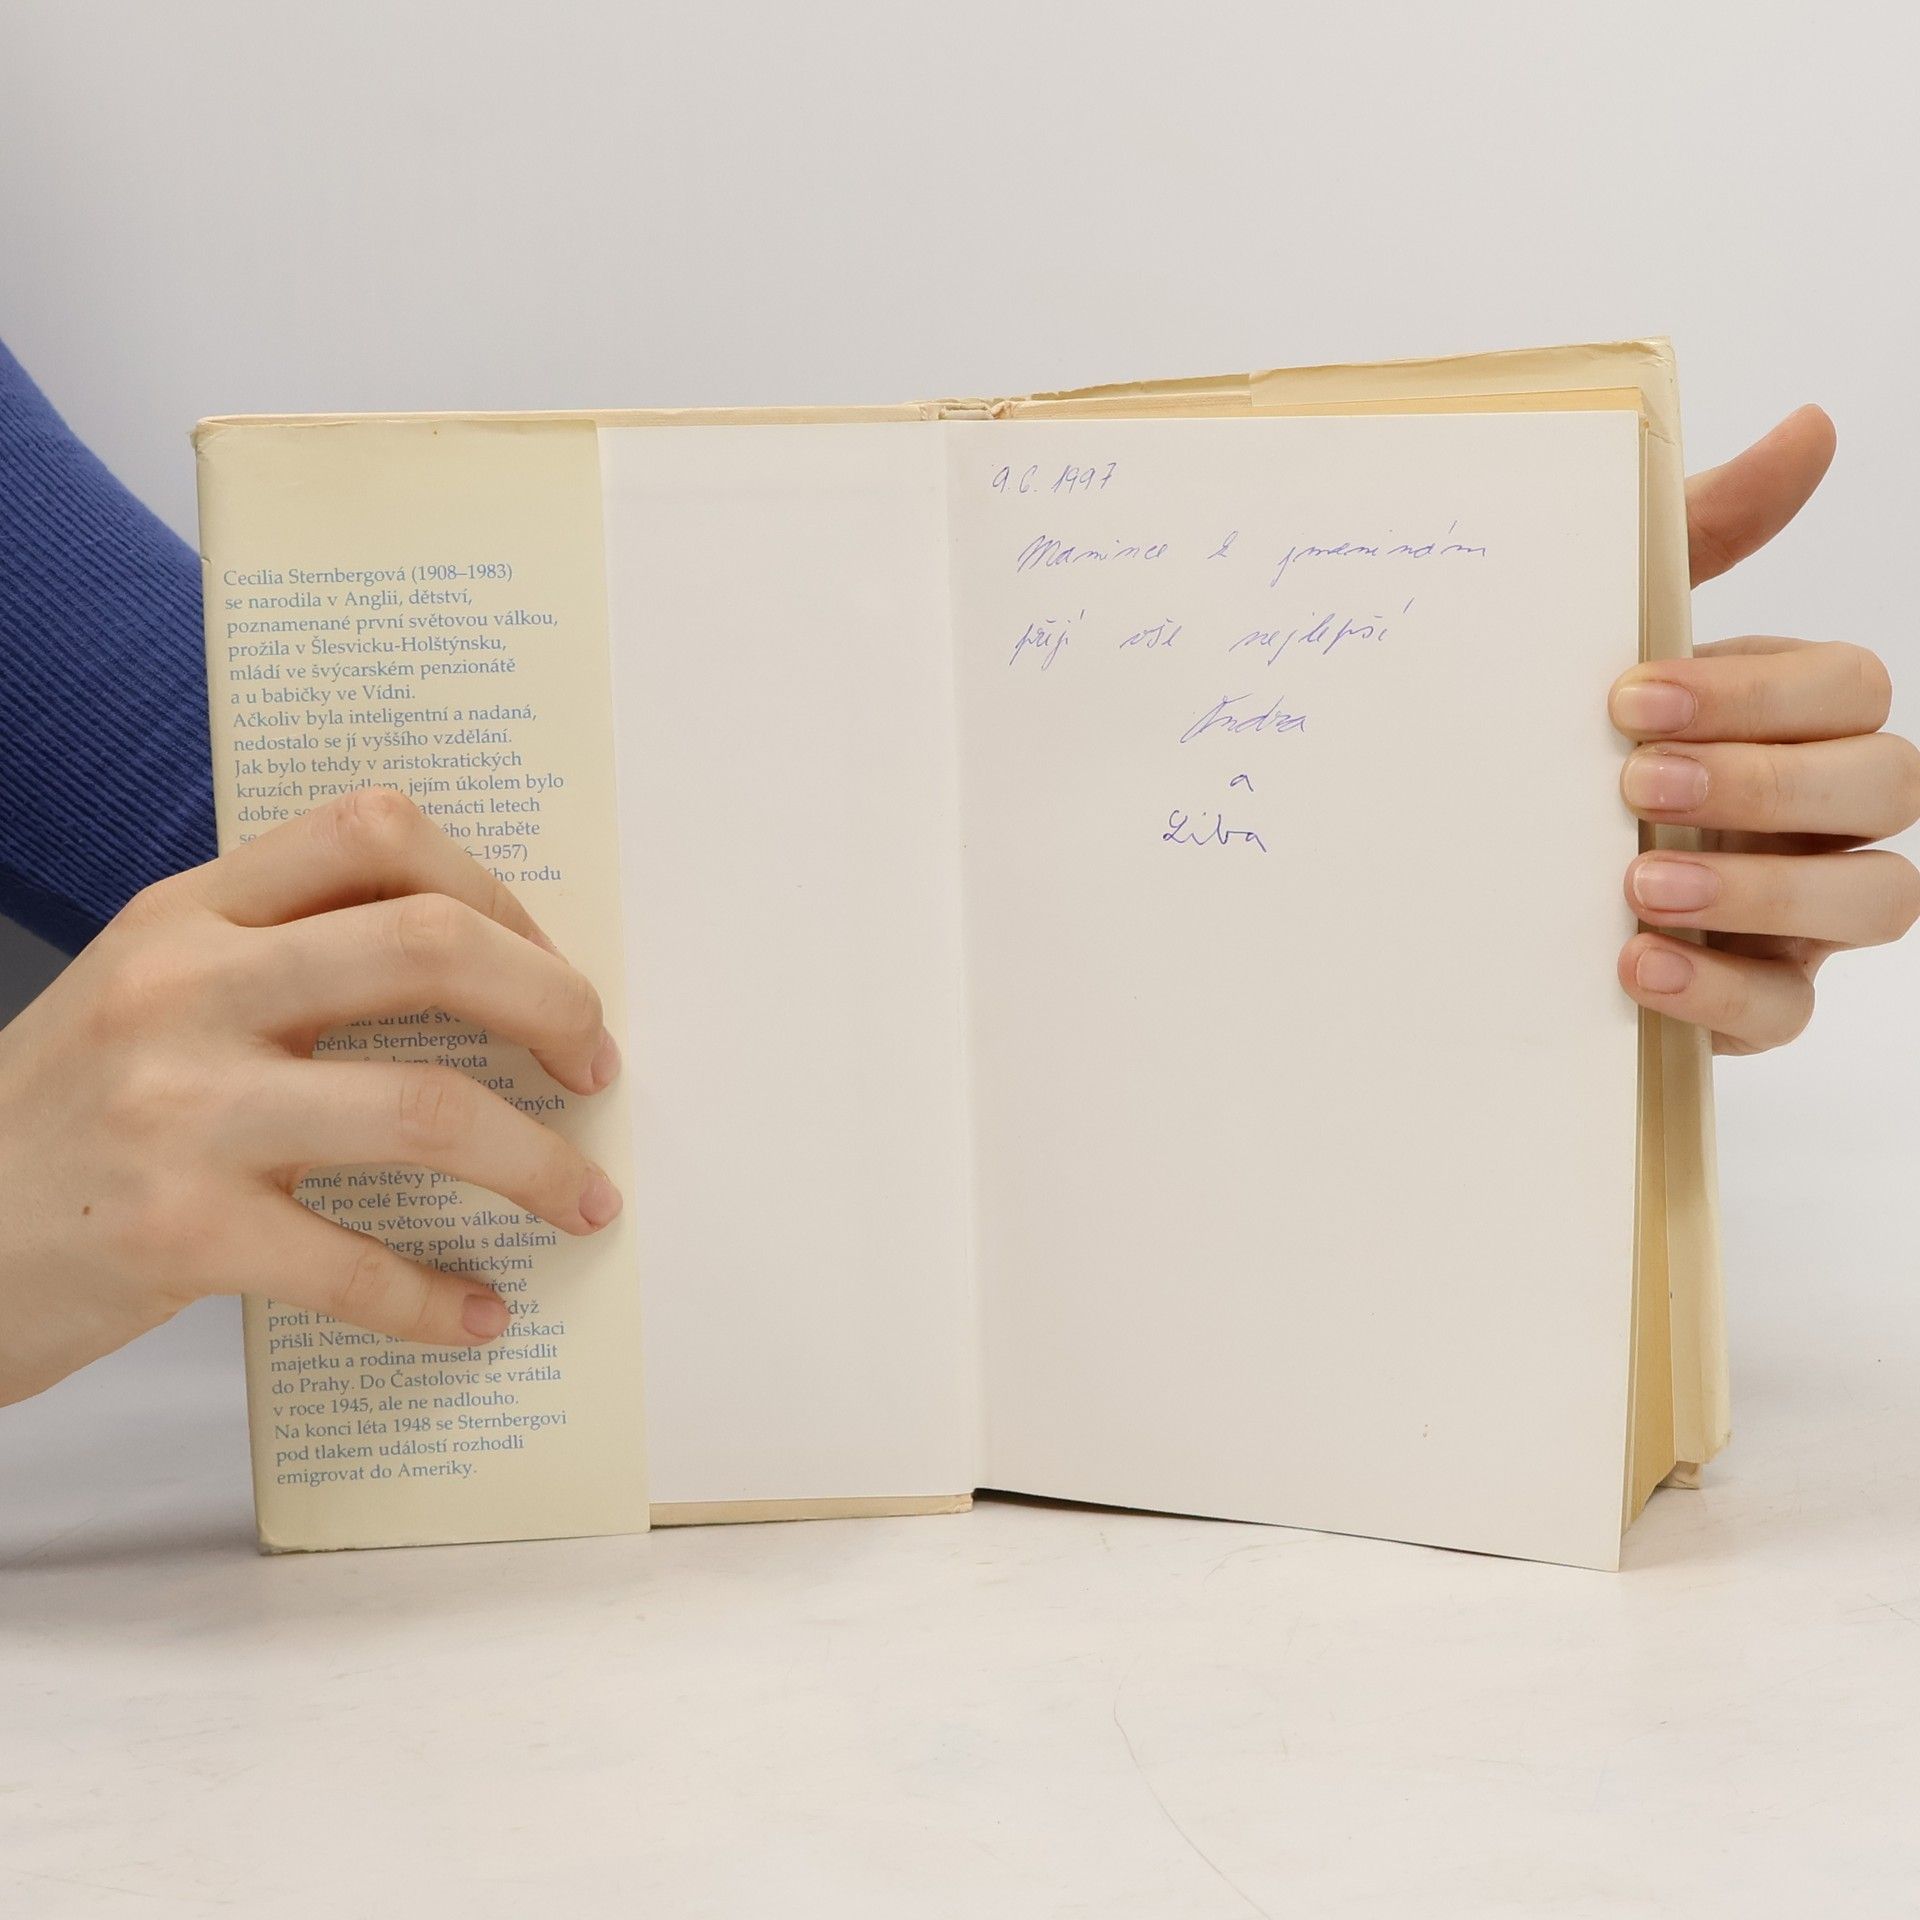 Cecilia Sternbergová (1908–1983)
se narodila v Anglii, dětství,
poznamenané první světovou válkou,
prožila v Šlesvicku-Holštýnsku,
mládí ve švýcarském penzionátě
a u babičky ve Vídni.
Ačkoliv byla inteligentní a nadaná,
nedostalo se jí vyššího vzdělání.
Jak bylo tehdy v aristokratických
kruzích pravidlem, jejím úkolem bylo
dobře letech
hraběte
–1957)
rodu
druhé
Sternbergová
života
návštěvy
po celé Evropě.
světovou válkou se
spolu s dalšími
proti
přišli Němci,
majetku a rodina musela přesídlit
do Prahy. Do Častolovic se vrátila
v roce 1945, ale ne nadlouho.
Na konci léta 1948 se Sternbergovi
pod tlakem událostí rozhodli
emigrovat do Ameriky.
9.6. 1997
Mamince k jmeninám
přejí vše nejlepší
a
Liba